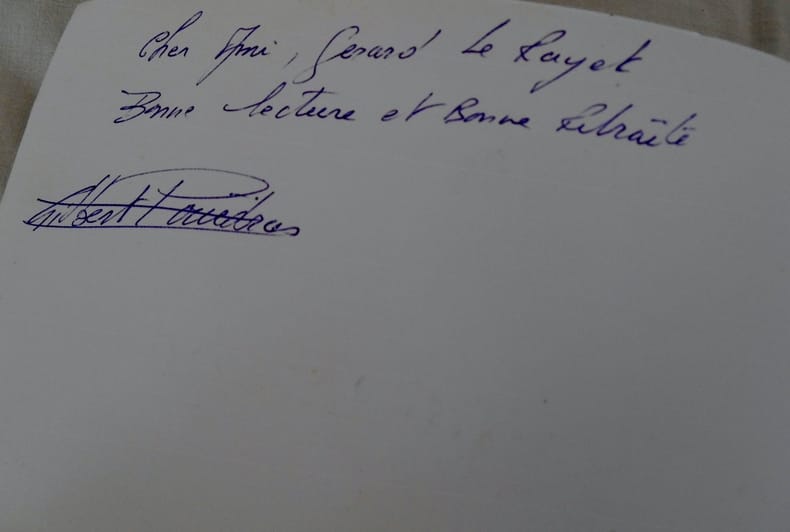 Cher Ami, Gerard Le Rayet
Bonne lecture et Bonne Retraite
Gilbert